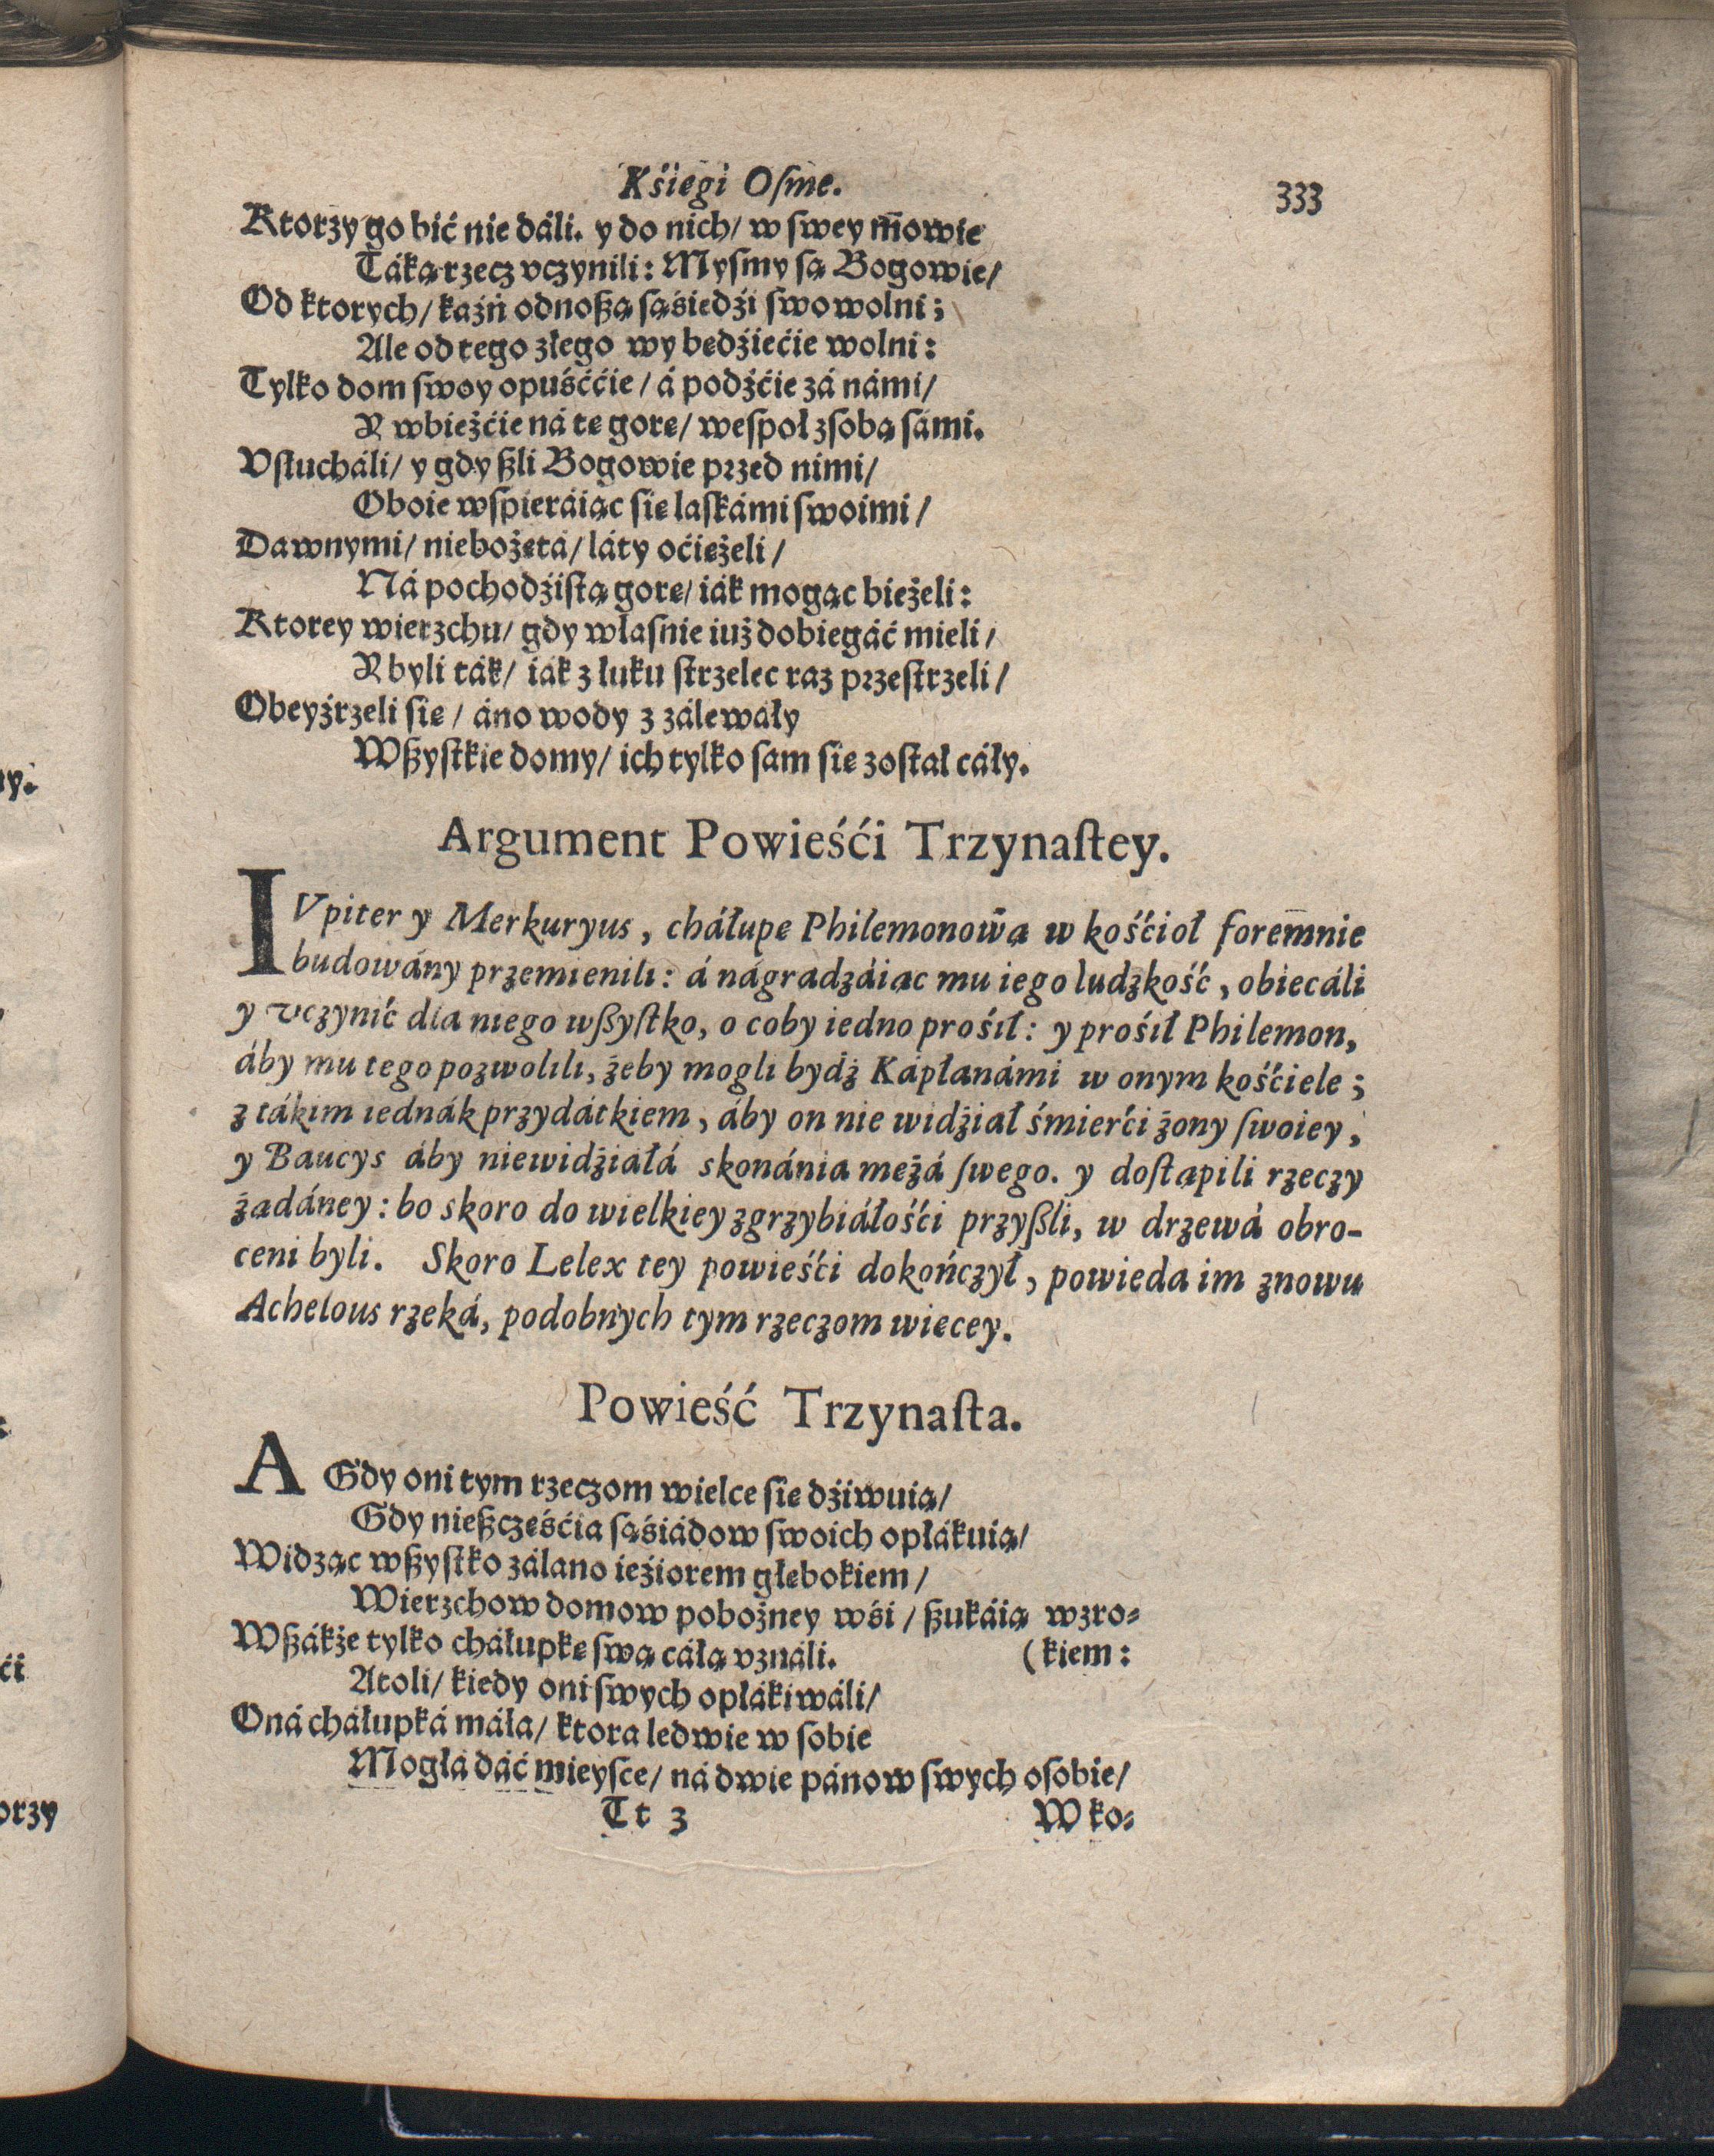 Kśięgi Oſme.
333
Ktorzy go bić nie dáli. y do nich/ w ſwey mowie
Táką rzecz vczynili: Myſmy są Bogowie/
Od ktorych/ kaźń odnoßą sąśiedźi ſwowolni;
Ale od tego złego wy będźiećie wolni:
Tylko dom ſwoy opuśććie/ á podźćie zá námi/
Y wbieżćie ná tę gorę/ weſpoł zſobą ſámi.
Vſłucháli/ y gdy ßli Bogowie przed nimi/
Oboie wſpieráiąc ſię laſkámi ſwoimi/
Dawnymi/ niebożętá/ láty oćiężeli/
Ná pochodźiſtą gorę/ iák mogąc bieżeli:
Ktorey wierzchu/ gdy właſnie iuż dobiegáć mieli/
Y byli ták/ iák z łuku ſtrzelec raz przeſtrzeli/
Obeyźrzeli ſię/ áno wody z zálewáły
Wßyſtkie domy/ ich tylko ſam ſię zoſtał cáły.
Argument Powieśći Trzynaſtey.
IVpiter y Merkuryus, cháłupę Philemonową w kośćioł foremnie
budowány przemienili: á nágradzáiąc mu iego ludzkość, obiecáli
y vczynić dla niego wßyſtko, o coby iedno prośił: y prośił Philemon,
áby mu tego pozwolili, żeby mogli bydź Kápłanámi w onym kośćiele;
z tákim iednák przydátkiem, áby on nie widźiał śmierći żony ſwoiey,
y Baucys áby niewidźiáłá skonánia mężá ſwego. y doſtąpili rzeczy
żądáney: bo skoro do wielkiey zgrzybiáłośći przyßli, w drzewá obro-
ceni byli. Skoro Lelex tey powieśći dokończył, powieda im znowu
Achelous rzeká, podobnych tym rzeczom więcey.
Powieść Trzynaſta.
A Gdy oni tym rzeczom wielce ſię dźiwuią/
Gdy nießczęśćia sąśiádow ſwoich opłákuią/
Widząc wßyſtko zálano ieźiorem głębokiem/
Wierzchow domow pobożney wśi/ ßukáią wzro-
Wßákże tylko cháłupkę ſwą cáłą vználi.
(kiem:
Atoli/ kiedy oni ſwych opłákiwáli/
Oná cháłupká máła/ ktora ledwie w ſobie
Mogłá dáć mieyſce/ ná dwie pánow ſwych oſobie/
Tt 3
W ko-